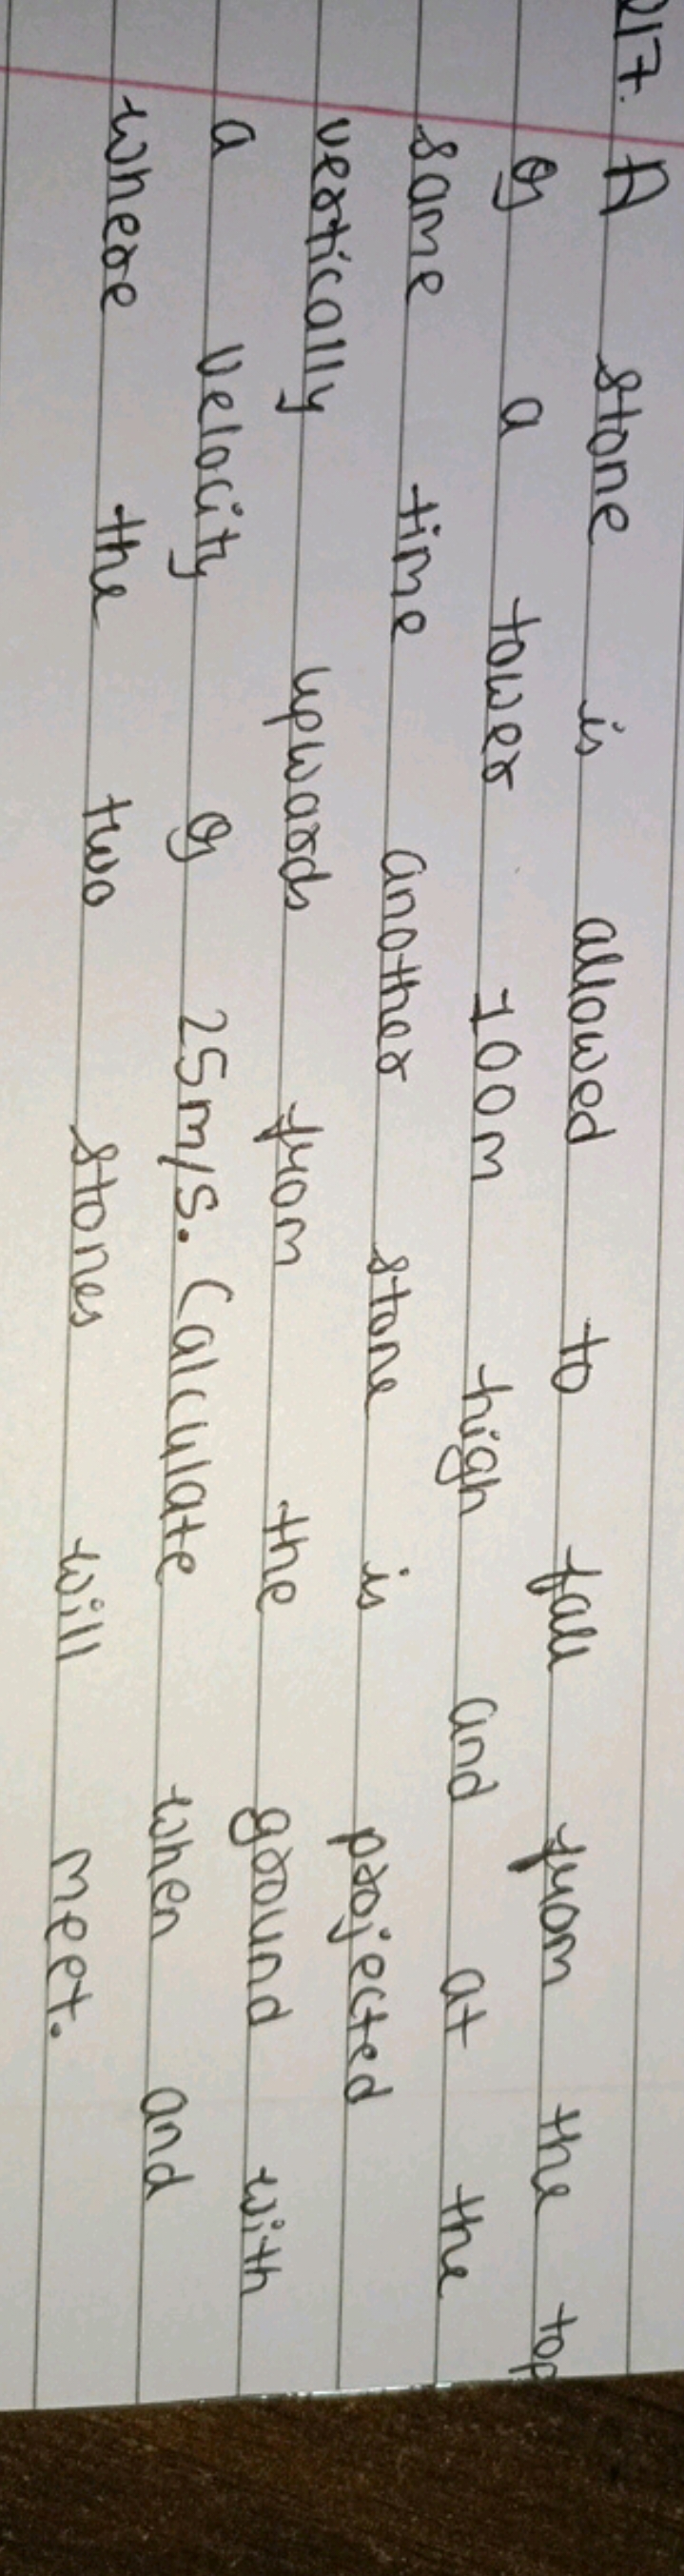 Q17. A stone is allowed to fall from the top
of a tower 100m high and at the
same time another stone is projected
vertically upwards from the ground with
a velocity of 25m/s. Calculate when and
where the two stones will meet.